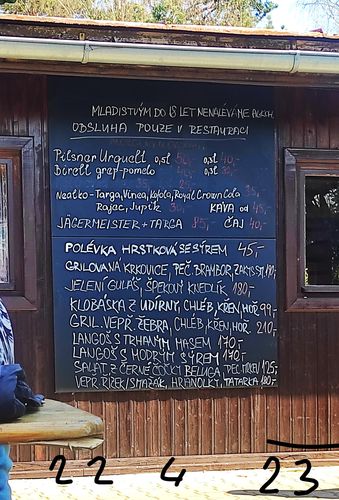 MLADISTVÝM DO 18 LET NENALÉVÁME ALKOH.
OBSLUHA POUZE V RESTAURACI
Pilsner Urquell 0,5l 50,- 0,3l 40,-
Birell grep-pomelo 0,3l 30,-
Nealko-Targa, Vinea, Kofola, Royal Crown Cola 35,-
Rajec, Jupík 30,- KÁVA od 45,-
JÄGERMEISTER + TARGA 85,- ČAJ 40,-
POLÉVKA HRSTKOVÁ SE SÝREM 45,-
GRILOVANÁ KRKOVICE, PEČ. BRAMBOR, ZAKYS.
JELENÍ GULÁŠ, ŠPEKOVÝ KNEDLÍK 190,-
KLOBÁSKA Z UDÍRNY, CHLÉB, KŘEN, HOŘ. 99,-
GRIL. VEPŘ. ŽEBRA, CHLÉB, KŘEN, HOŘ. 210,-
LANGOŠ S TRHANÝM MASEM 170,-
LANGOŠ S MODRÝM SÝREM 170,-
SALÁT Z ČERNÉ ČOČKY BELUGA, PEČ. 125,-
VEPŘ. ŘÍZEK/SMAŽÁK, HRANOLKY, TATARKA 180,-
22 4 23